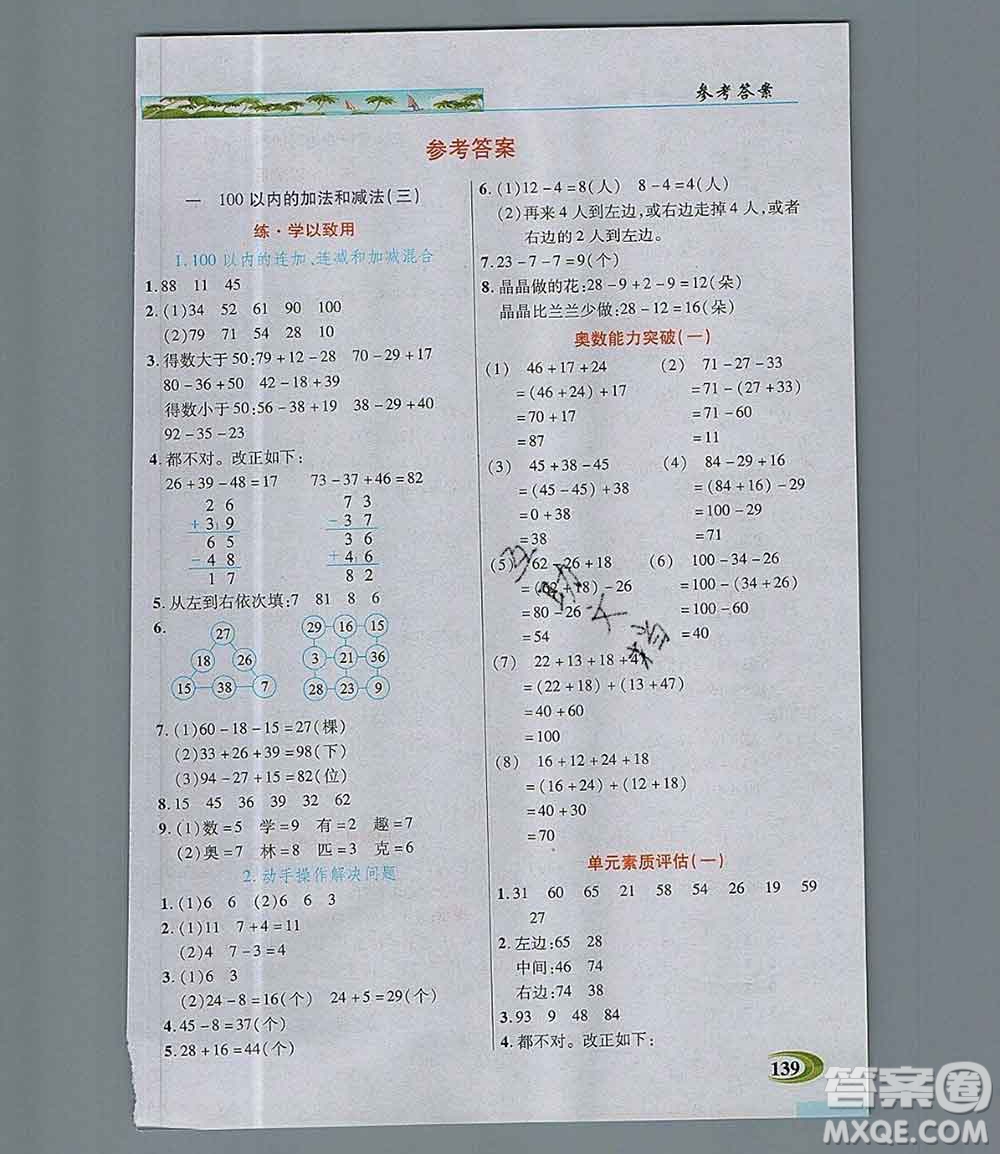 参考答案
参考答案
一 100以内的加法和减法(三)
练·学以致用
1.100以内的连加、连减和加减混合
1.88 11 45
2.(1)34 52 61 90 100
(2)79 71 54 28 10
3.得数大于50:79+12-28 70-29+17
80-36+50 42-20+40
得数小于50:56-38+19 38-29+40
92-35-23
4.都不对。改正如下:
26+39-48=17 73-37+46=82
2 6 7 3
+ 3 9 - 3 7
6 5 3 6
- 4 8 + 4 6
1 7 8 2
5.从左到右依次填:7 81 8 6
6.
27 29 16 15
18 26 3 21 36
15 38 7 28 23 9
7.(1)60-18-15=27(棵)
(2)33+26+39=98(下)
(3)94-27+15=82(位)
8.15 45 36 39 32 62
9.(1)数=5 学=9 有=2 趣=7
(2)奥=7 林=8 匹=3 克=6
2.动手操作解决问题
1.(1)6 6 (2)6 6 3
2.(1)11 7+4=11
(2)4 7-3=4
3.(1)6 3
(2)24-8=16(个) 24+5=29(个)
4.45-8=37(个)
5.28+16=44(个)
6.(1)12-4=8(人) 8-4=4(人)
(2)再来4人到左边,或右边走掉4人,或者
右边的2人到左边。
7.23-7-7=9(个)
8.晶晶做的花:28-9+2-9=12(朵)
晶晶比兰兰少做:28-12=16(朵)
奥数能力突破(一)
(1) 46+17+24 (2) 71-27-33
=(46+24)+17 =71-(27+33)
=70+17 =71-60
=87 =11
(3) 45+38-45 (4) 84-29+16
=(45-45)+38 =(84+16)-29
=0+38 =100-29
=38 =71
(5) 62-26+18 (6) 100-34-26
=(62+18)-26
=80-26
=54 =40
(7) 22+13+18+47
=(22+18)+(13+47)
=40+60
=100
(8) 16+12+24+18
=(16+24)+(12+18)
=40+30
=70
单元素质评估(一)
1.31 60 65 21 58 54 26 19 59
27
2.左边:65 28
中间:46 74
右边:74 38
3.93 9 48 84
4.都不对。改正如下:
139
答案圈
MXQE.COM